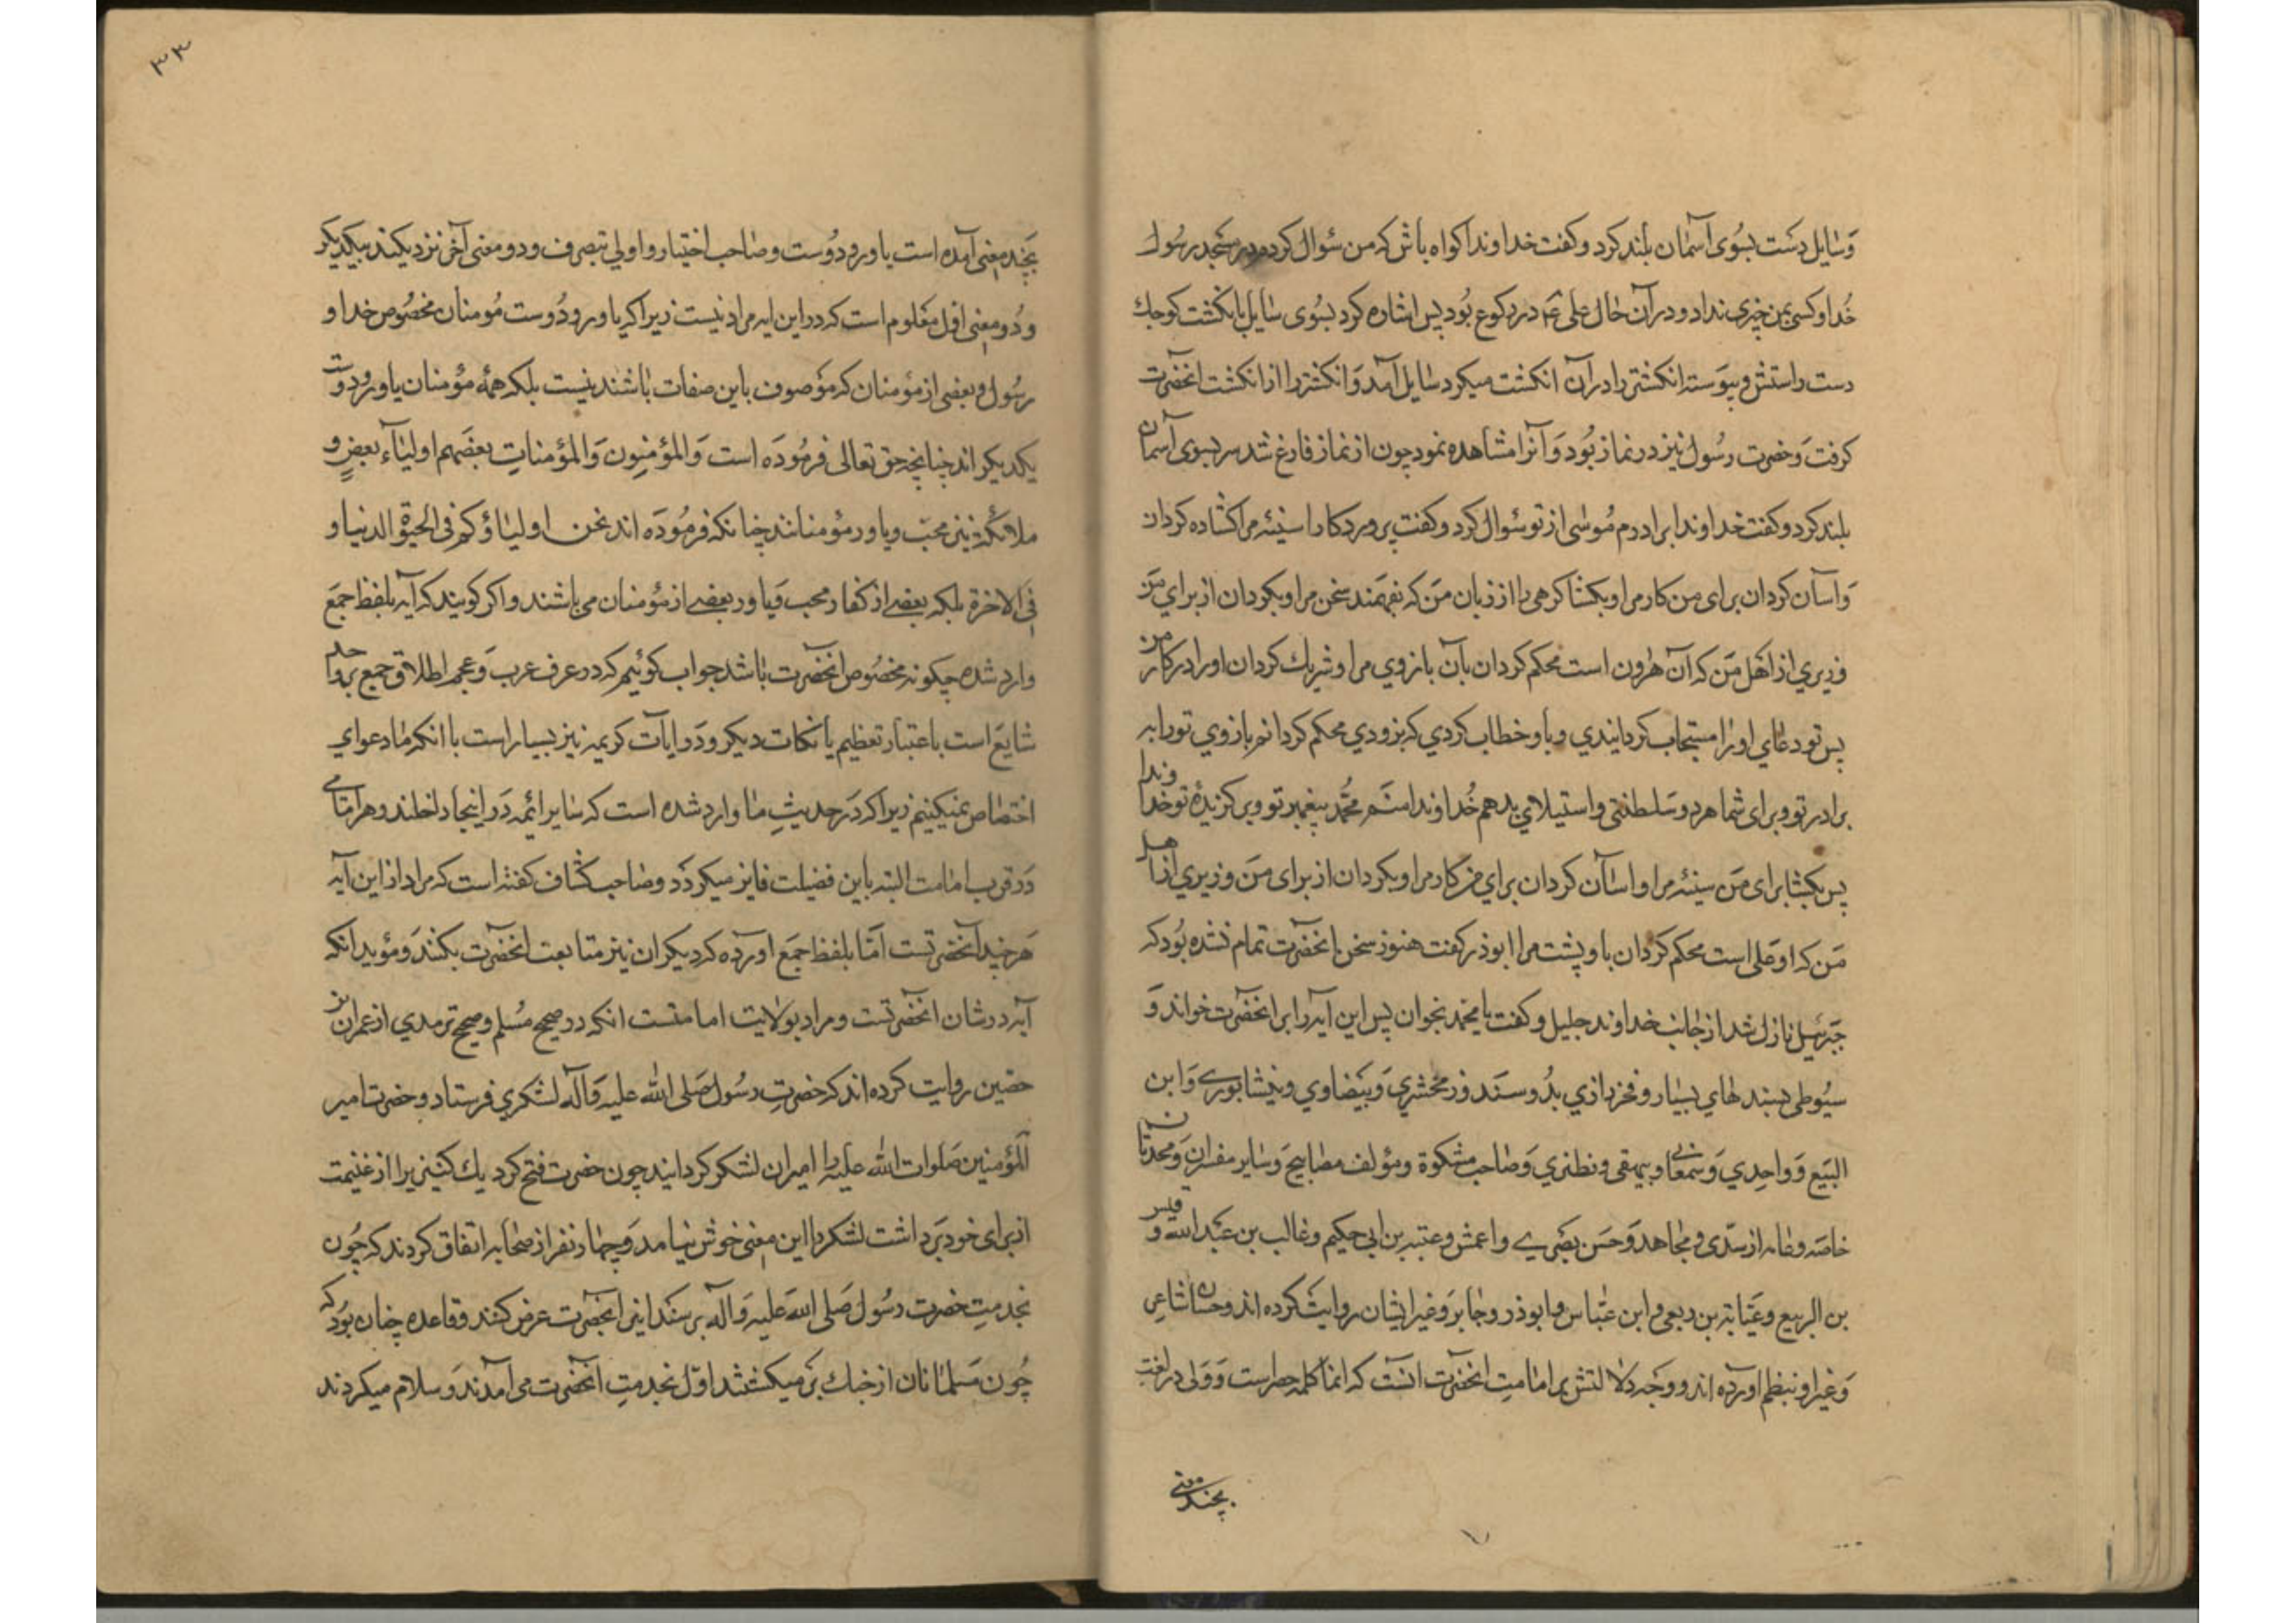 وسایل دست بسوی آسمان بلند کرد و کفت خداوندا کواه باش که من سئوال کردم در مسجد رسول
خدا و کسی بمن چیزی نداد و در آن حال علی ع در رکوع بود پس اشاره کرد بسوی سایل بانکشت کوچک
دست راستش و پیوسته انکشتری را در آن انکشت میکرد سایل آمد و انکشتر را از انکشت انحضرت
کرفت و حضرت رسول نیز در نماز بود و آنرا مشاهده نمود چون از نماز فارغ شد سر بسوی آسمان
بلند کرد و کفت خداوندا برادرم موسی از تو سئوال کرد و کفت پروردکارا سینه مرا کشاده کردان
و آسان کردان برای من کار مرا و بکشا کرهی را از زبان من که بفهمند سخن مرا و بکردان از برای من
وزیری از اهل من که آن هرون است محکم کردان بآن بازوی مرا و شریک کردان او را در کار من
پس تو دعای او را مستجاب کردانیدی و باو خطاب کردی که بزودی محکم کردانم بازوی تو را به
برادر تو و برای شما هر دو سلطنتی و استیلای بدهم خداوندا منم محمد پیغمبر تو و برکزیده تو خداوندا
پس بکشا برای من سینه مرا و اسآن کردان برای من کار مرا و بکردان از برای من وزیری از اهل
من که او علی است محکم کردان باو پشت مرا ابوذر کفت هنوز سخن انحضرت تمام نشده بود که
جبرئیل نازل شد از جانب خداوند جلیل و کفت یا محمد بخوان پس این آیه را برا انحضرت خواند و
سیوطی بسند لهای بسیار و فخر رازی بدو سند و زمخشری و بیضاوی و نیشابوری و ابن
البیع و واحدی و سمعانی و بیهقی و نطنزی و صاحب مشکوة و مؤلف مصابیح و سایر مفسران و محدثان
خاصه و عامه از سدی و مجاهد و حسن بصری و اعمش و عتبه بن ابی حکیم و غالب بن عبد الله و قیس
بن الربیع و عبایة بن ربعی و ابن عباس و ابوذر و جابر و غیر ایشان روایت کرده اند و حسان شاعر
و غیر او بنظم اورده اند و وجه دلالتش بر امامت انحضرت انست که انما کلمه حصر است و ولی در لغت
بچند معنی
۳۳
بچند معنی آمده است یاور و دوست و صاحب اختیار و اولی بتصرف و دو معنی آخر نزدیکند بیکدیکر
و دو معنی اول معلوم است که در این ایه مراد نیست زیرا که یاور و دوست مومنان مخصوص خدا و
رسول و بعضی از مؤمنان که موصوف باین صفات باشند نیست بلکه همه مؤمنان یاور و دوست
یکدیکر اند چنانچه حق تعالی فرموده است والمؤمنون والمؤمنات بعضهم اولیآء بعض و
ملائکه نیز محب و یاور مؤمنانند چنانکه فرموده اند نحن اولیاؤکم فی الحیوة الدنیا و
فی الاخرة بلکه بعضی از کفار محب و یاور بعضی از مؤمنان می باشند و اکر کویند که آیه بلفظ جمع
وارد شده چکونه مخصوص انحضرت باشد جواب کوئیم که در عرف عرب و عجم اطلاق جمع بر واحد
شایع است باعتبار تعظیم یا نکات دیکر و در ایآت کریمه نیز بسیار است با انکه ما دعوای
اختصاص نمیکنیم زیرا که در حدیث ما وارد شده است که سایر ائمه در اینجا داخلند و هر امامی
در قرب امامت البته باین فضیلت فایز میکردد و صاحب کشاف کفته است که مراد از این آیه
هر چند انحضرتست اما بلفظ جمع اورده که دیکران نیز متابعت انحضرت بکنند و مؤید انکه
آیه در شان انحضرتست و مراد بولایت امامتست انکه در صحیح مسلم و صحیح ترمدی از عمران بن
حصین روایت کرده اند که حضرت رسول صلی الله علیه و آله لشکری فرستاد و حضرت امیر
المؤمنین صلوات الله علیه را امیر ان لشکر کردانید چون حضرت فتح کرد یک کنیزی را از غنیمت
از برای خود برداشت لشکر را این معنی خوش نیامد و چهار نفر از صحابه اتفاق کردند که چون
بخدمت حضرت رسول صلی الله علیه و آله برسند اینرا بانحضرت عرض کنند و قاعده چنان بود که
چون مسلمانان از جنک بر میکشتند اول بخدمت انحضرت می آمدند و سلام میکردند